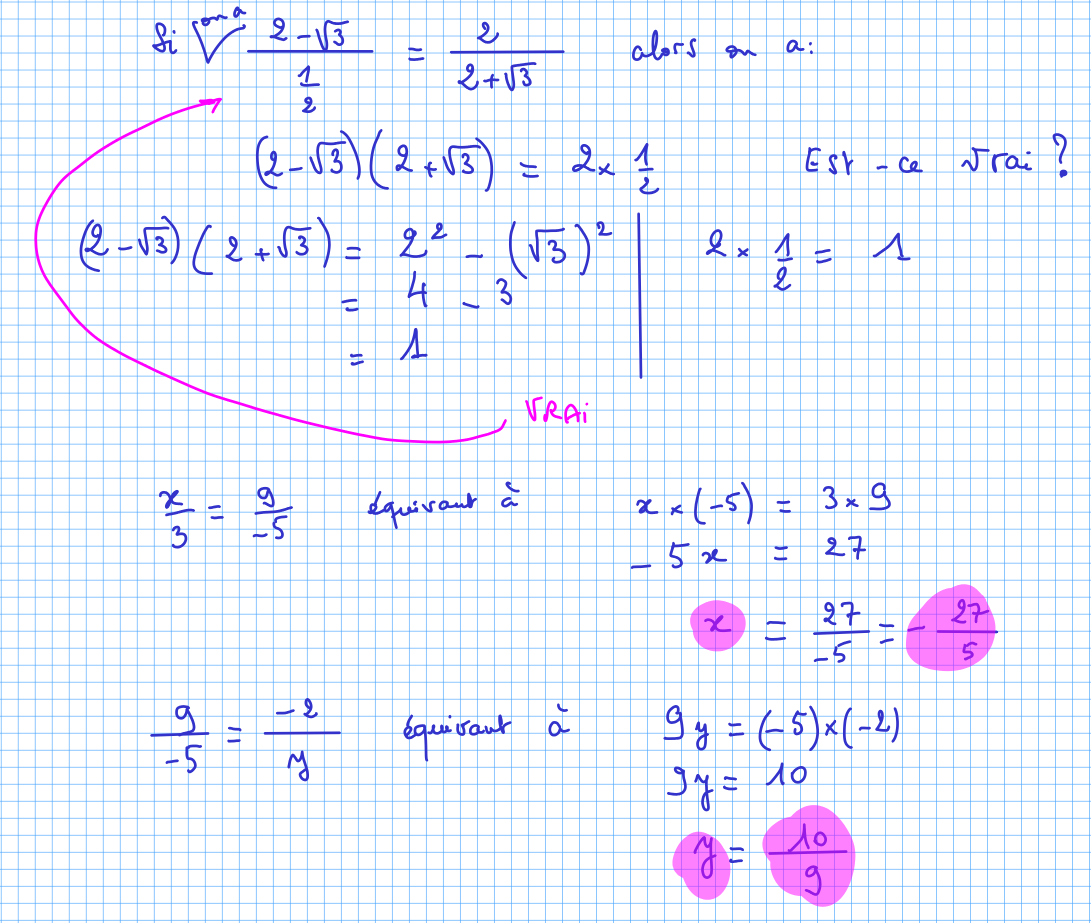 Si on a (2-√3)/(1/2) = 2/(2+√3) alors on a:
(2-√3)(2+√3) = 2 × 1/2 Est-ce vrai ?
(2-√3)(2+√3) = 2² - (√3)² | 2 × 1/2 = 1
= 4 - 3
= 1
VRAi
x/3 = 9/-5 équivaut à x × (-5) = 3 × 9
-5x = 27
x = 27/-5 = -27/5
9/-5 = -2/y équivaut à 9y = (-5)×(-2)
9y = 10
y = 10/9